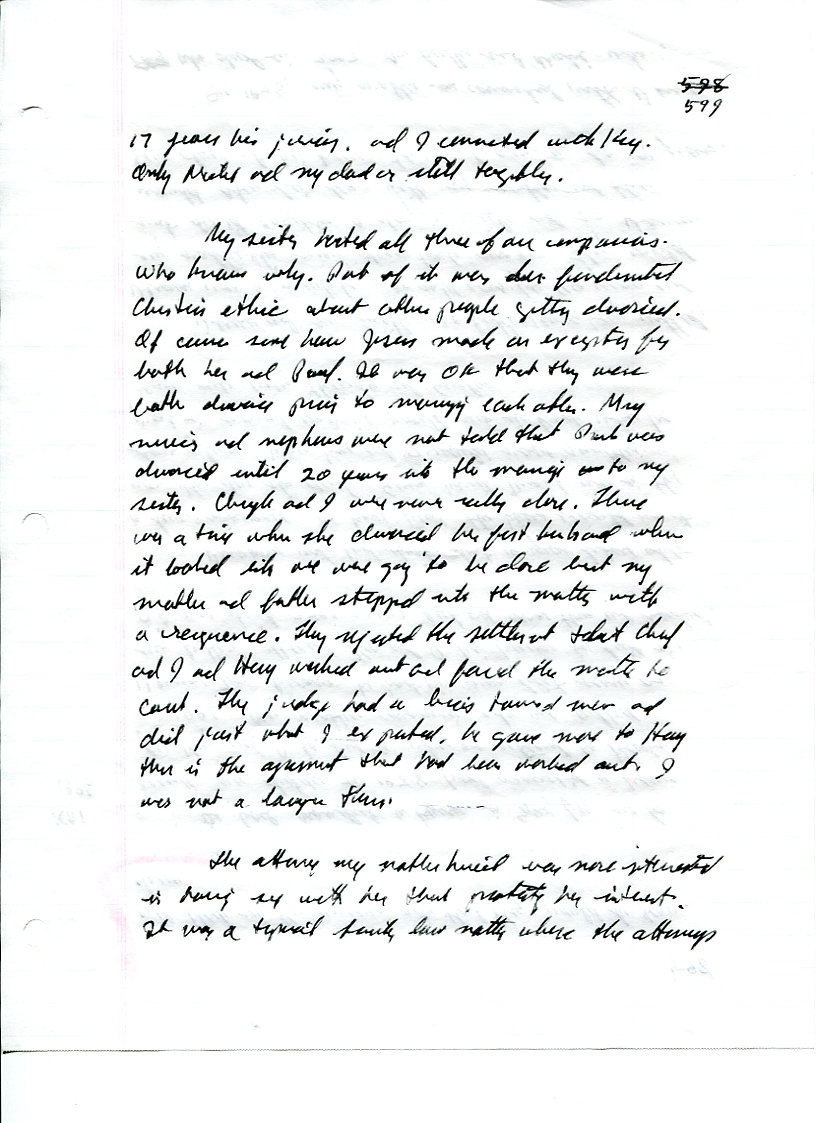 598
599
17 years his junior. and I connected with Kay.
Only and my dad are still together.
My sister hated all three of our companions.
Who knows why. Part of it was her fundamental
Christian ethic about other people getting divorced.
Of course some how Jesus made an exception for
both her and Paul. It was OK that they were
both divorced prior to marrying each other. My
nieces and nephews were not told that Paul was
divorced until 20 years into the marriage to my
sister. Cheryl and I were never really close. There
was a time when she divorced her first husband when
it looked like we were going to be close but my
mother and father stepped into the matter with
a vengeance. They rejected the settlement that
and I and Harry worked out and forced the matter to
court. The judge had a bias toward men and
did just what I expected, he gave more to Harry
than in the agreement that had been worked out. I
was not a lawyer then.
The attorney my mother hired was more interested
in having sex with her than protecting her interest.
It was a typical family law matter where the attorneys